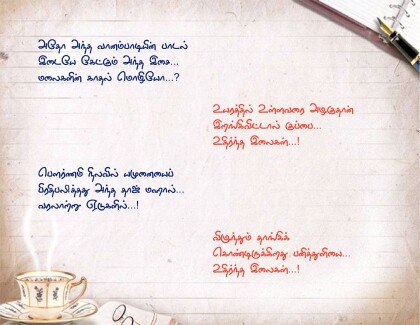 அதோ அந்த வானம்பாடியின் பாடல்
இடையே கேட்கும் அந்த இசை...
மலைகளின் காதல் மொழியோ...?
உயரத்தில் உள்ளவரை அழகுதான்
இறங்கிவிட்டால் குப்பை...
உதிர்ந்த இலைகள்...!
பௌர்ணமி நிலவில் யமுனையைப்
பிரதிபலித்தது அந்த தாஜ் மஹால்...
வரலாற்று ஏடுகளில்...!
விழுந்தும் தாங்கிக்
கொண்டிருக்கிறது பனித்துளியை...
உதிர்ந்த இலைகள்...!